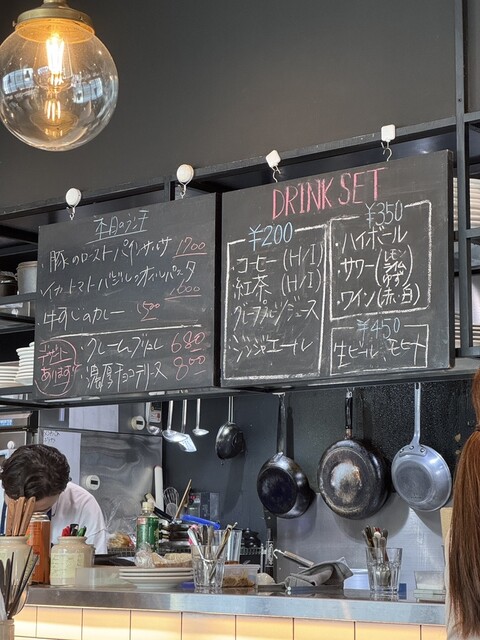 本日のランチ
豚のローストパインサルサ 1700
イカとトマトバジルのオイルパスタ
1600
牛すじのカレー 1500
デザート
あります
クレームブリュレ 680
濃厚チョコテリーヌ 800
DRINK SET
¥200
コーヒー (H/I)
紅茶 (H/I)
グレープフルーツジュース
ジンジャエール
¥350
ハイボール
サワー (レモン
ライム
ゆず)
ワイン (赤・白)
¥450
生ビール モヒート